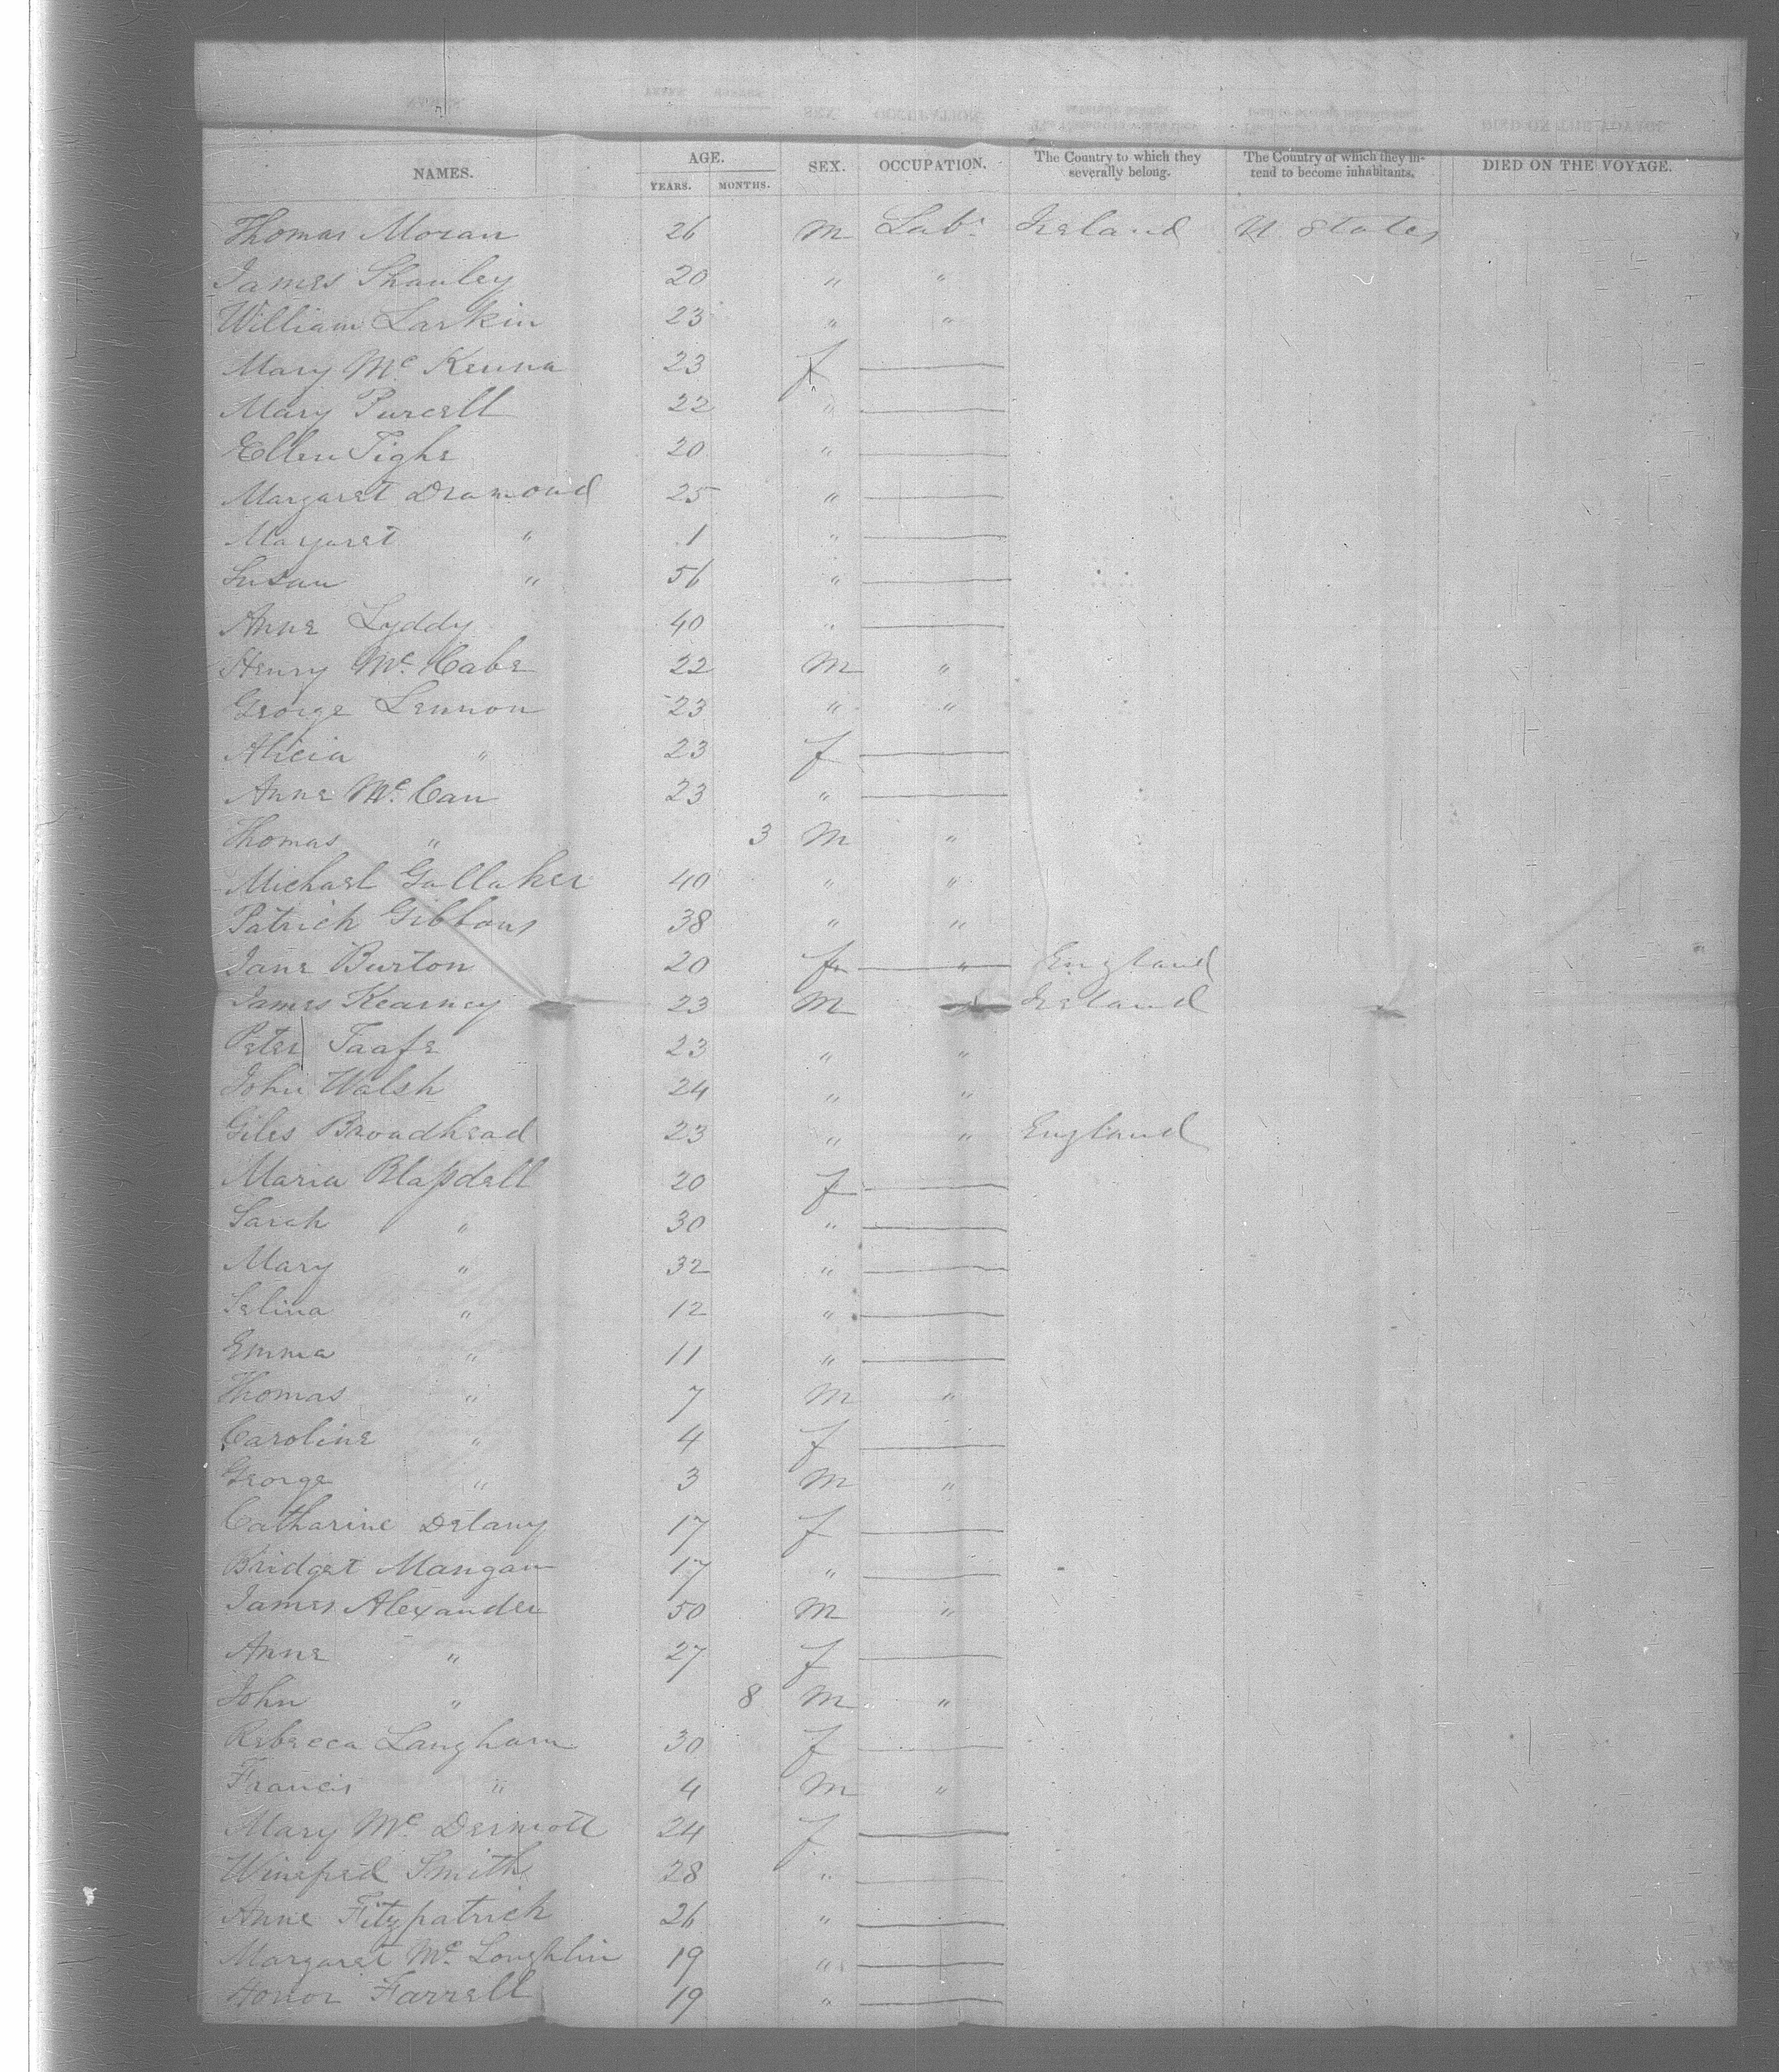 NAMES. AGE. SEX. OCCUPATION. The Country to which they severally belong. The Country of which they intend to become inhabitants. DIED ON THE VOYAGE.
YEARS. MONTHS.
Thomas Moran 26 M Labr Ireland U. States
James Shanley 20 " "
William Larkin 23 " "
Mary Mc Kenna 23 f —
Mary Purcell 22 " —
Ellen Tighe 20 " —
Margaret Dramond 25 " —
Margaret " 1 " —
Susan " 56 " —
Anne Lyddy 40 " —
Henry Mc Cabe 22 M "
George Lennon 23 " "
Alicia " 23 f —
Anne Mc Can 23 " —
Thomas " 3 M "
Michael Gallaher 40 " "
Patrick Gibbons 38 " "
Jane Burton 20 f " England
James Kearney 23 M Ireland
Peter Taafe 23 " "
John Walsh 24 " "
Giles Broadhead 23 " " England
Maria Blaſsdell 20 f —
Sarah " 30 " —
Mary " 32 " —
Selina " 12 " —
Emma " 11 " —
Thomas " 7 M "
Caroline " 4 f —
George " 3 M "
Catharine Delany 17 f —
Bridget Mangan 17 " —
James Alexander 50 M "
Anne " 27 f —
John " 8 M "
Rebecca Langham 30 f —
Francis " 4 M "
Mary Mc Dermott 24 f —
Winefred Smith 28 " —
Anne Fitzpatrick 26 " —
Margaret Mc Loughlin 19 " —
Honor Farrell 19 " —